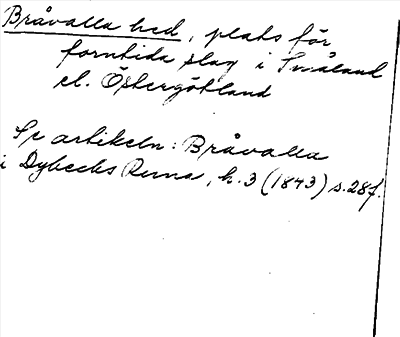 Bråvalla hed, plats för
forntida slag i Småland
el. Östergötland
Se artikeln: Bråvalla
i Dybecks Runa, h. 3 (1843) s. 28f.